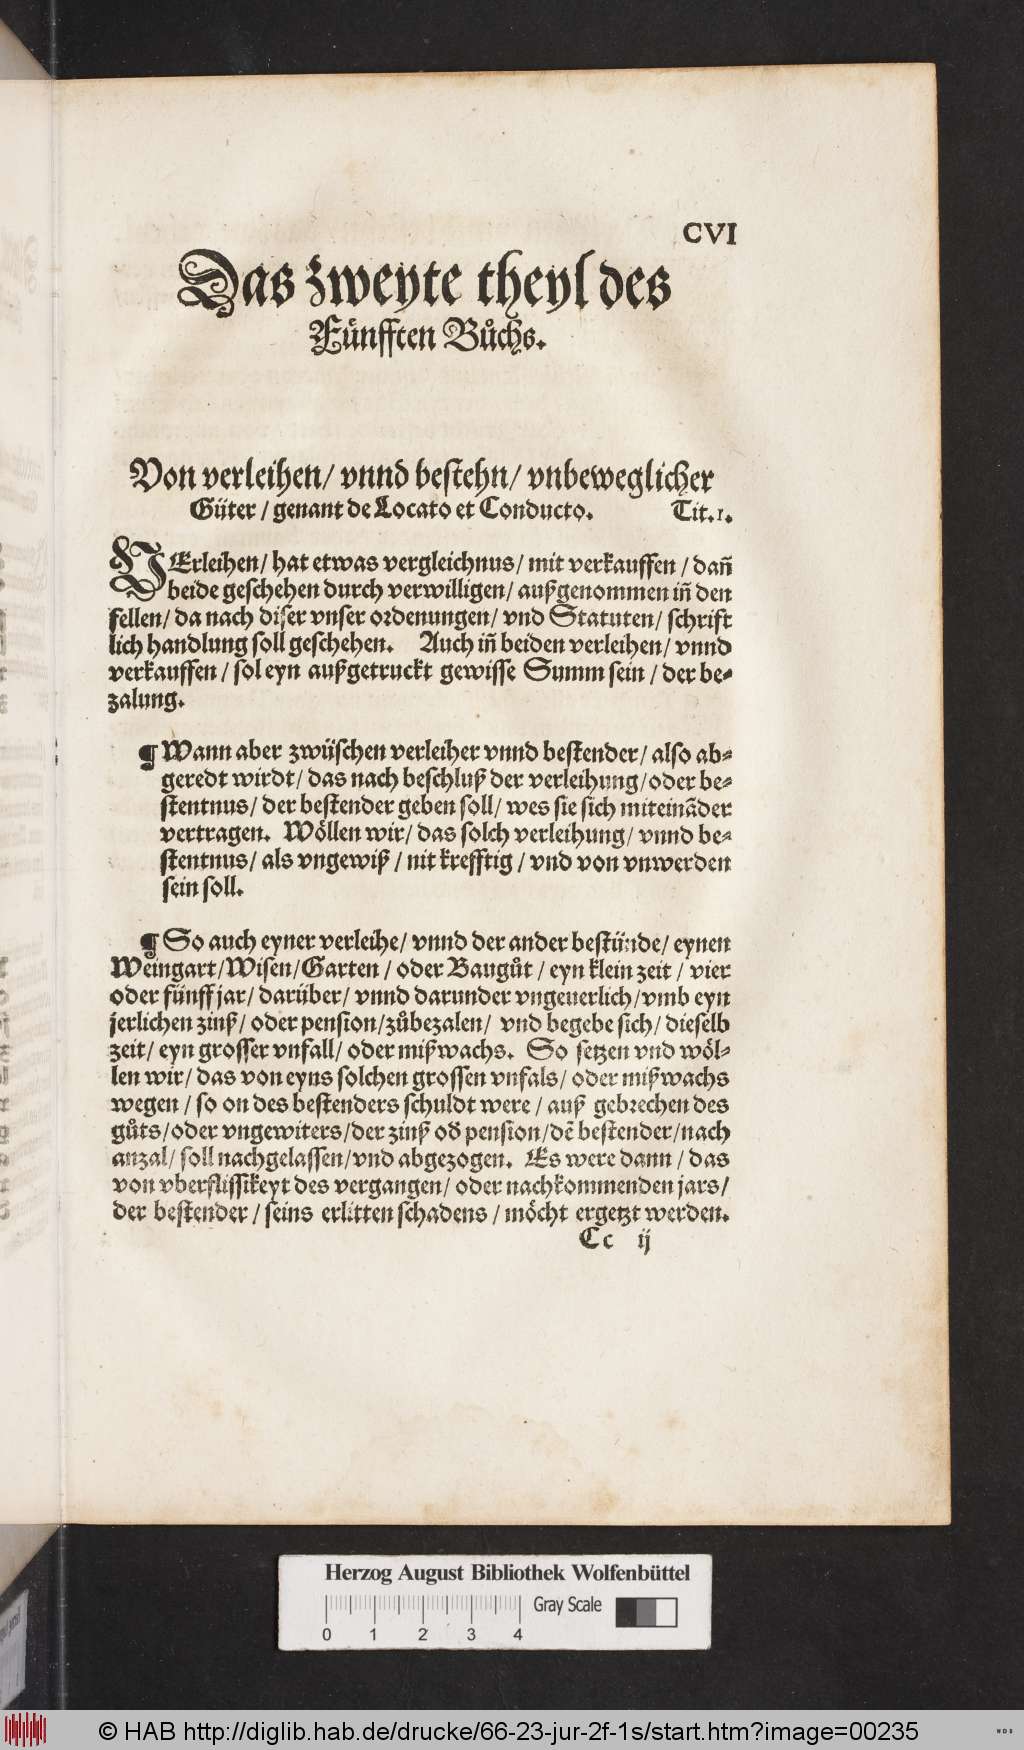 CVI
Das zweyte theyl des
Fünfften Bůchs.
Von verleihen/ vnnd bestehn/ vnbeweglicher
Güter / genant de Locato et Conducto. Tit.1.
VErleihen/ hat etwas vergleichnus/ mit verkauffen / dañ
beide geschehen durch verwilligen/ außgenommen iñ den
fellen/ da nach diser vnser ordenungen/ vnd Statuten/ schrift
lich handlung soll geschehen. Auch iñ beiden verleihen/ vnnd
verkauffen / sol eyn außgetruckt gewisse Summ sein / der be⸗
zalung.
¶ Wann aber zwüschen verleiher vnnd bestender/ also ab⸗
geredt wirdt/ das nach beschluß der verleihung/ oder be⸗
stentnus/ der bestender geben soll/ wes sie sich miteinãder
vertragen. Wöllen wir/ das solch verleihung/ vnnd be⸗
stentnus/ als vngewiß / nit krefftig / vnd von vnwerden
sein soll.
¶ So auch eyner verleihe/ vnnd der ander bestünde/ eynen
Weingart/ Wisen/ Garten / oder Baugůt / eyn klein zeit / vier
oder fünff jar/ darüber/ vnnd darunder vngeuerlich/ vmb eyn
jerlichen zinß/ oder pension/ zůbezalen/ vnd begebe sich/ dieselb
zeit/ eyn grosser vnfall/ oder mißwachs. So setzen vnd wöl⸗
len wir/ das von eyns solchen grossen vnfals/ oder mißwachs
wegen / so on des bestenders schuldt were / auß gebrechen des
gůts/ oder vngewiters/ der zinß od̕ pension/ dẽ bestender/ nach
anzal/ soll nachgelassen/ vnd abgezogen. Es were dann / das
von vberflissikeyt des vergangen/ oder nachkommenden jars/
der bestender / seins erlitten schadens / möcht ergetzt werden.
Cc ij
Herzog August Bibliothek Wolfenbüttel
Gray Scale
0 1 2 3 4
© HAB http://diglib.hab.de/drucke/66-23-jur-2f-1s/start.htm?image=00235